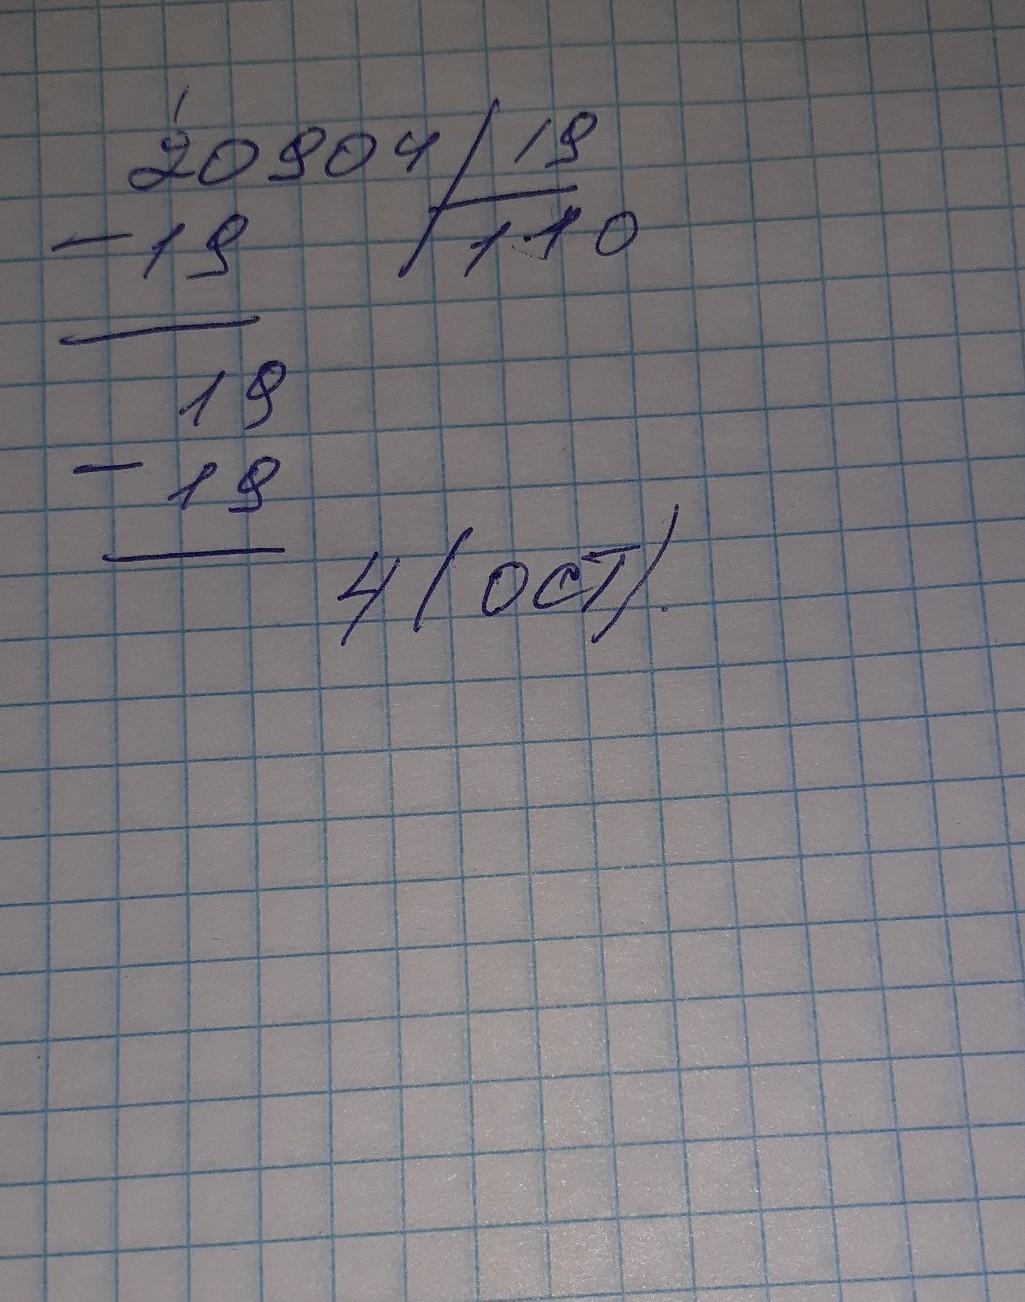 20904 19
- 19 110
19
- 19
4 (ОСТ).